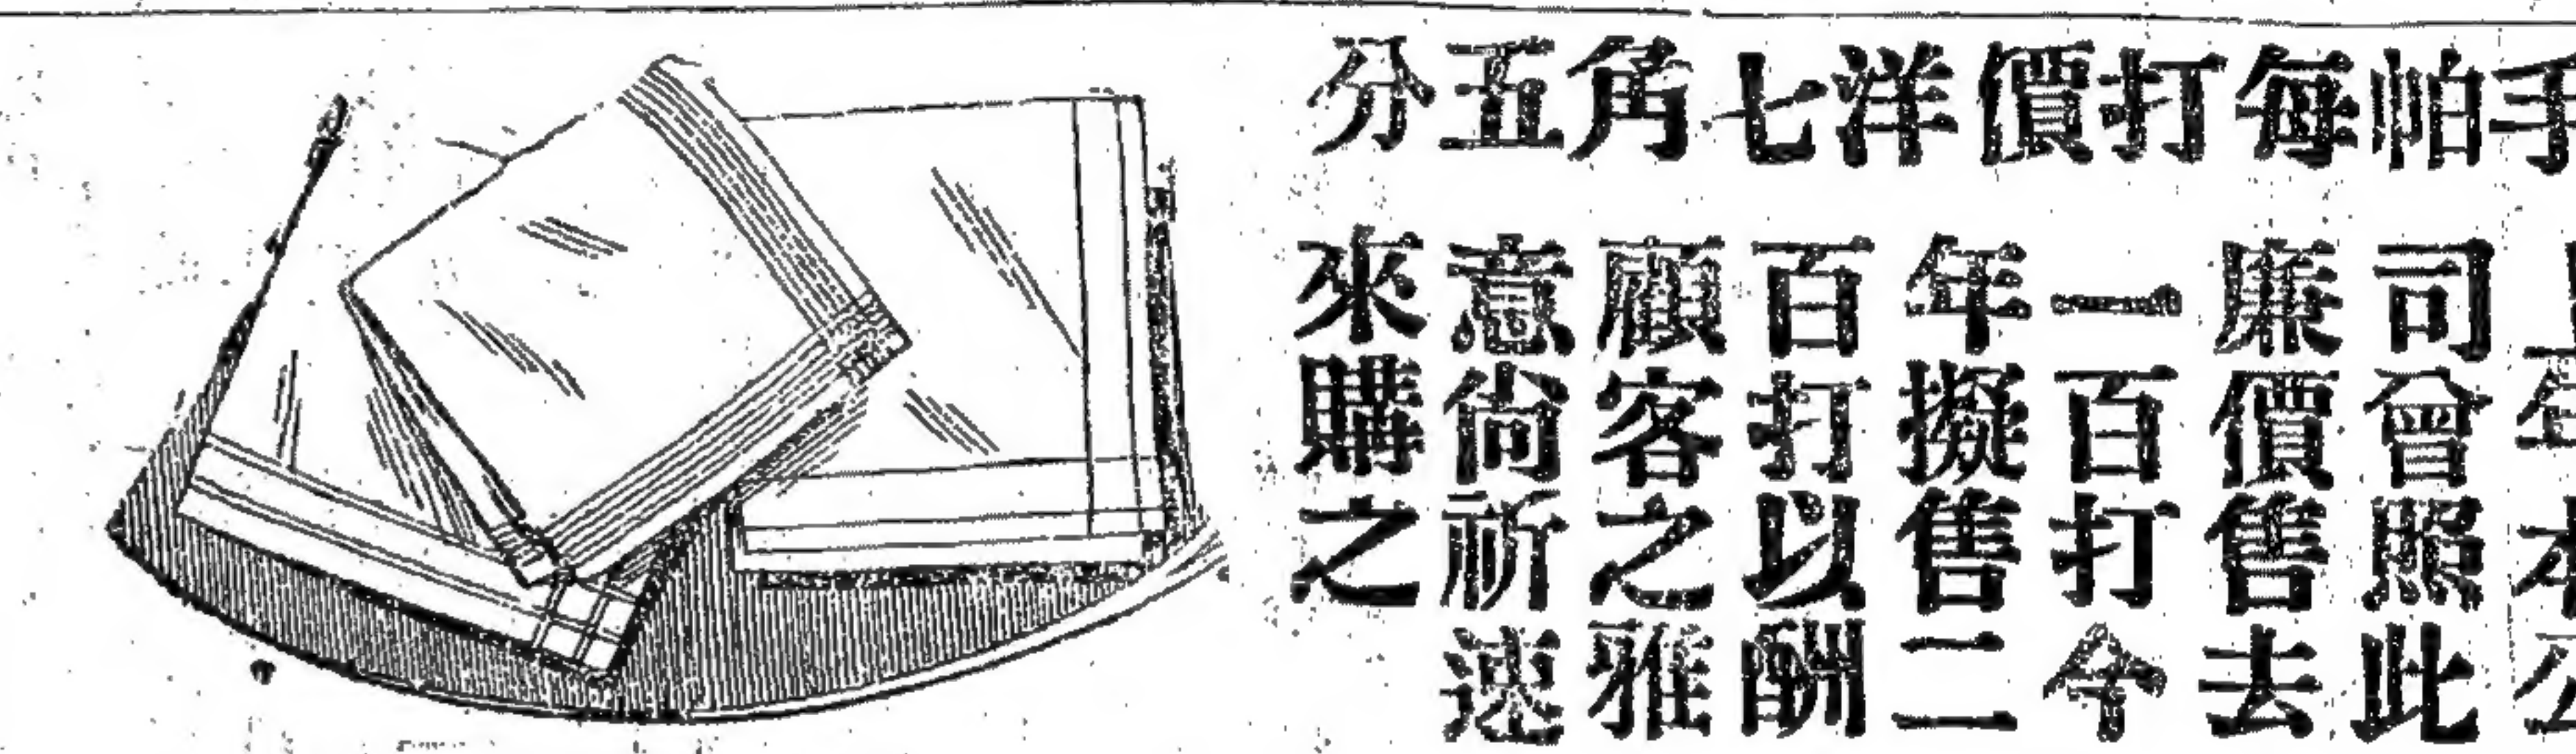 手帕每打價洋七角五分
本公
司曾照此
廉價售去
一百打今
年擬售二
百打以酬
顧客之雅
意尚祈速
來購之